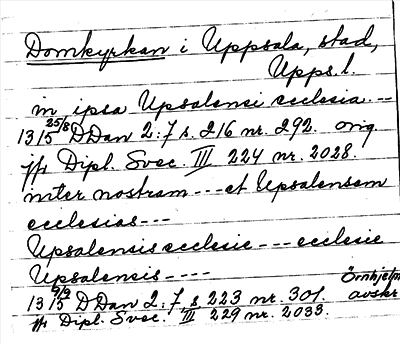 Domkyrkan i Uppsala, stad,
Upps. l.
in ipsa Upsalensi ecclesia. --
13 25/8 15 DDan 2:7 s. 216 nr. 292. orig.
jfr Dipl. Svec. III 224 nr. 2028.
inter nostram --- et Upsalensem
ecclesias ---
Upsalensis ecclesie --- ecclesie
Upsalensis ----
13 9/9 15 DDan 2:7 s 223 nr. 301. Örnhjelm avskr
jfr Dipl. Svec. III 229 nr. 2033.